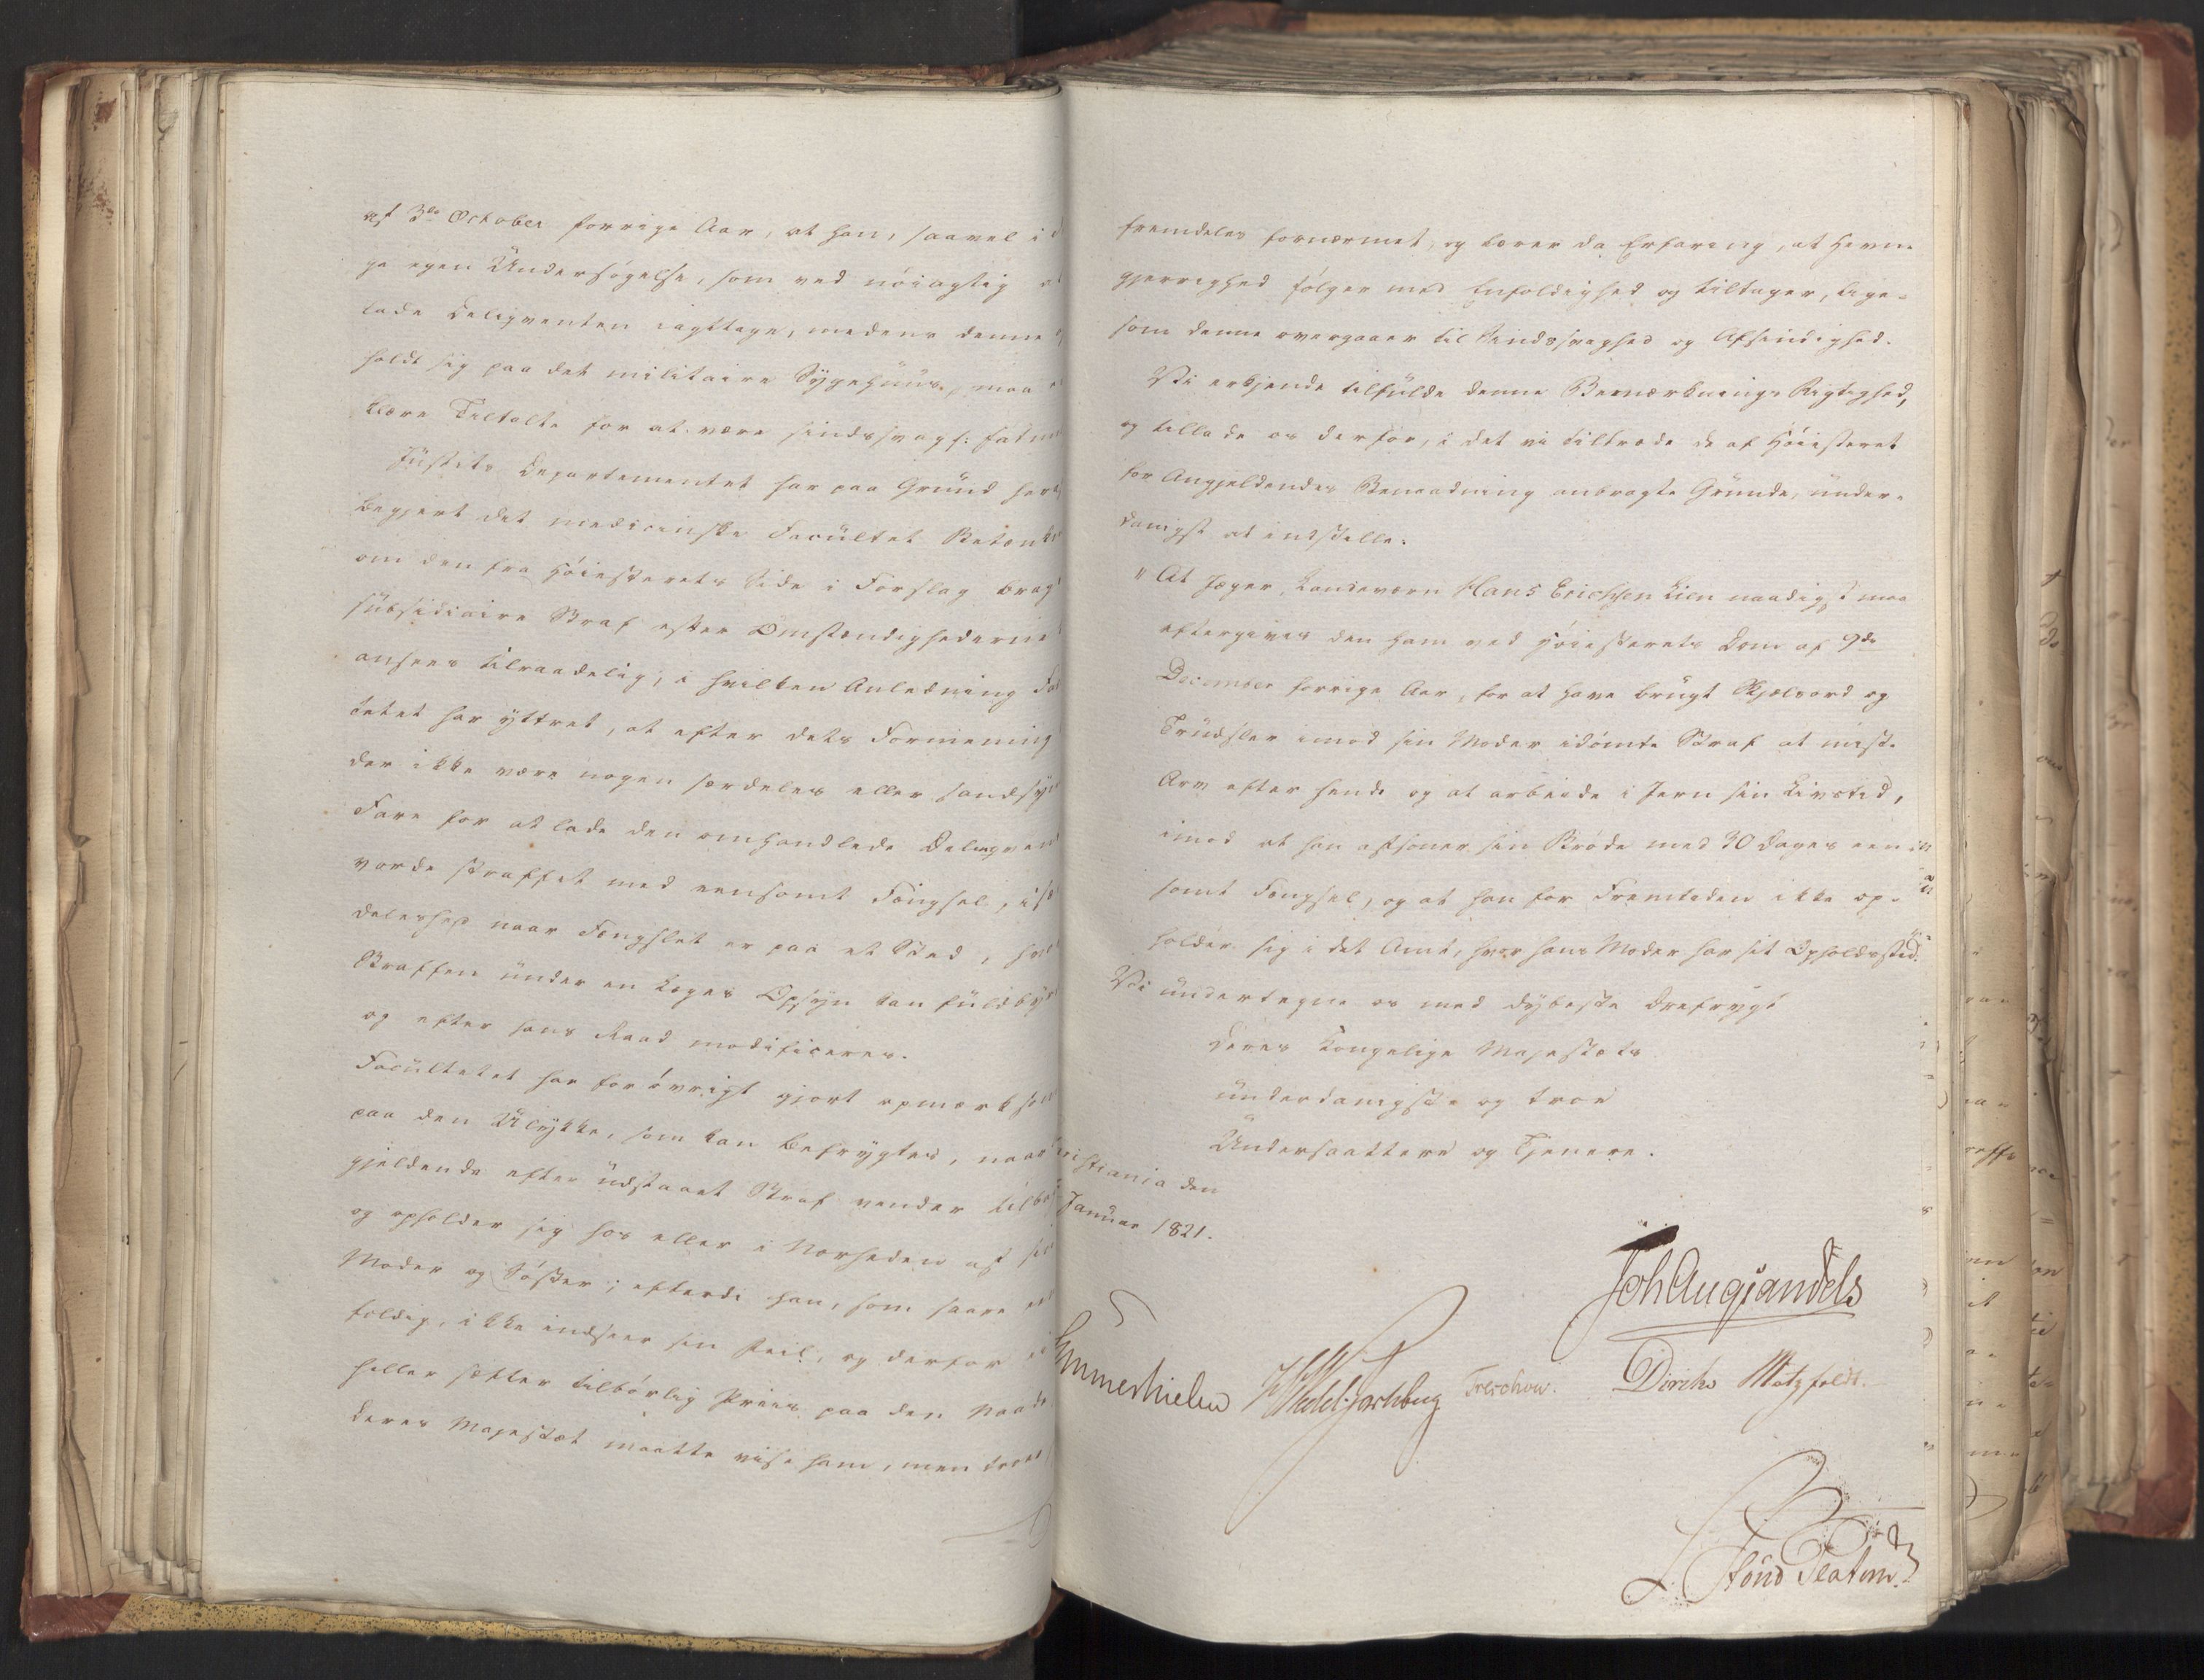 af 3de October forrige Aar, at han, saavel i
ge egen Undersøgelse, som ved nøiagtig
lade Deliqventen iagttage, medens denne
holdt sig paa det militaire Sygehuus, maa
klære Tiltalte for at være sindssvag f: fatu
Justits Departementet har paa Grund her
begjert det medicinske Facultet Betænk
om den fra Høiesterets Side i Forslag brag
subsidiaire Straf efter Omstændighederne
ansees tilraadelig, i hvilken Anledning Fa
tetet har yttret, at efter dets Formening
der ikke være nogen særdeles eller sandsyn
Fare for at lade den omhandlede Delinqvent
vorde straffet med eensomt Fængsel, i
deleshed naar Fængslet er paa et Sted, hvor
Straffen under en Læges Opsyn kan fuldby
og efter hans Raad modificeres.
Facultetet har forøvrigt gjort opmærksom
paa den Ulykke, som kan befrygtes, naar
gjeldende efter udstaaet Straf vender tilba
og opholder sig hos eller i Nærheden af si
Moder og Søster; efterdi han, som saare een
foldig, ikke indseer sin Feil, og derfor ei
heller sætter tilbørlig Priis paa den Naade
Deres Majestæt maatte vise ham, men troer
fremdeles fornærmet, og lærer da Erfaring, at Hevn-
gjerrighed følger med Enfoldighed og tiltager, lige-
som denne overgaaer til Sindssvaghed og Afsindighed.
Vi erkjende tilfulde denne Bemærknings Rigtighed,
og tillade os derfor, i det vi tiltræde de af Høiesteret
for Angjeldendes Benaadning anbragte Grunde, under-
danigst at indstille:
"At Jæger, Landeværn Hans Erichsen Lien naadigst maa
eftergives den ham ved Høiesterets Dom af 9de
December forrige Aar, for at have brugt Skjelsord og
Trudsler imod sin Moder idømte Straf at miste
Arv efter hende og at arbeide i Jern sin Livstid,
imod at han afsoner sin Brøde med 30 Dages een-
somt Fængsel, og at han for Fremtiden ikke op-
holder sig i det Amt, hvor hans Moder har sit Opholdssted.
Vi undertegne os med dybeste Ærefrygt
Deres Kongelige Majestæts
underdanigste og troe
Undersaattere og Tjenere.
ristiania den
Januar 1821.
Joh Aug Sandels
Sommerhielm HWedel Jarlsberg Treschow. Diriks Motzfeldt.
Stoud Platou